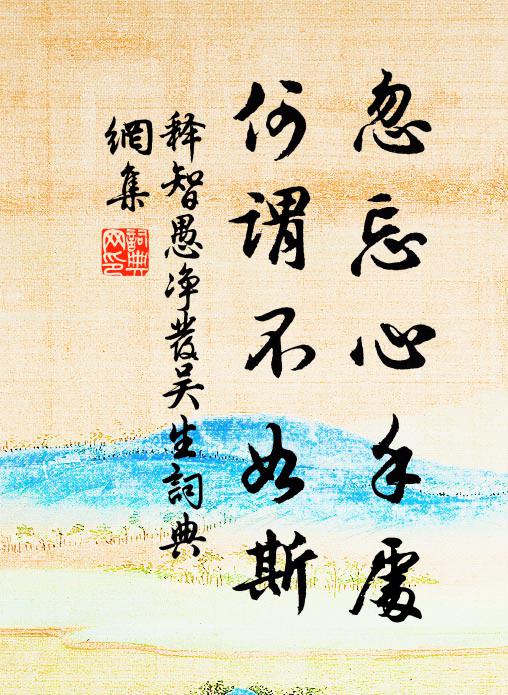 忽忘心手處
何謂不如斯
释智愚净髮吴生詞典
網集
詞典
网印